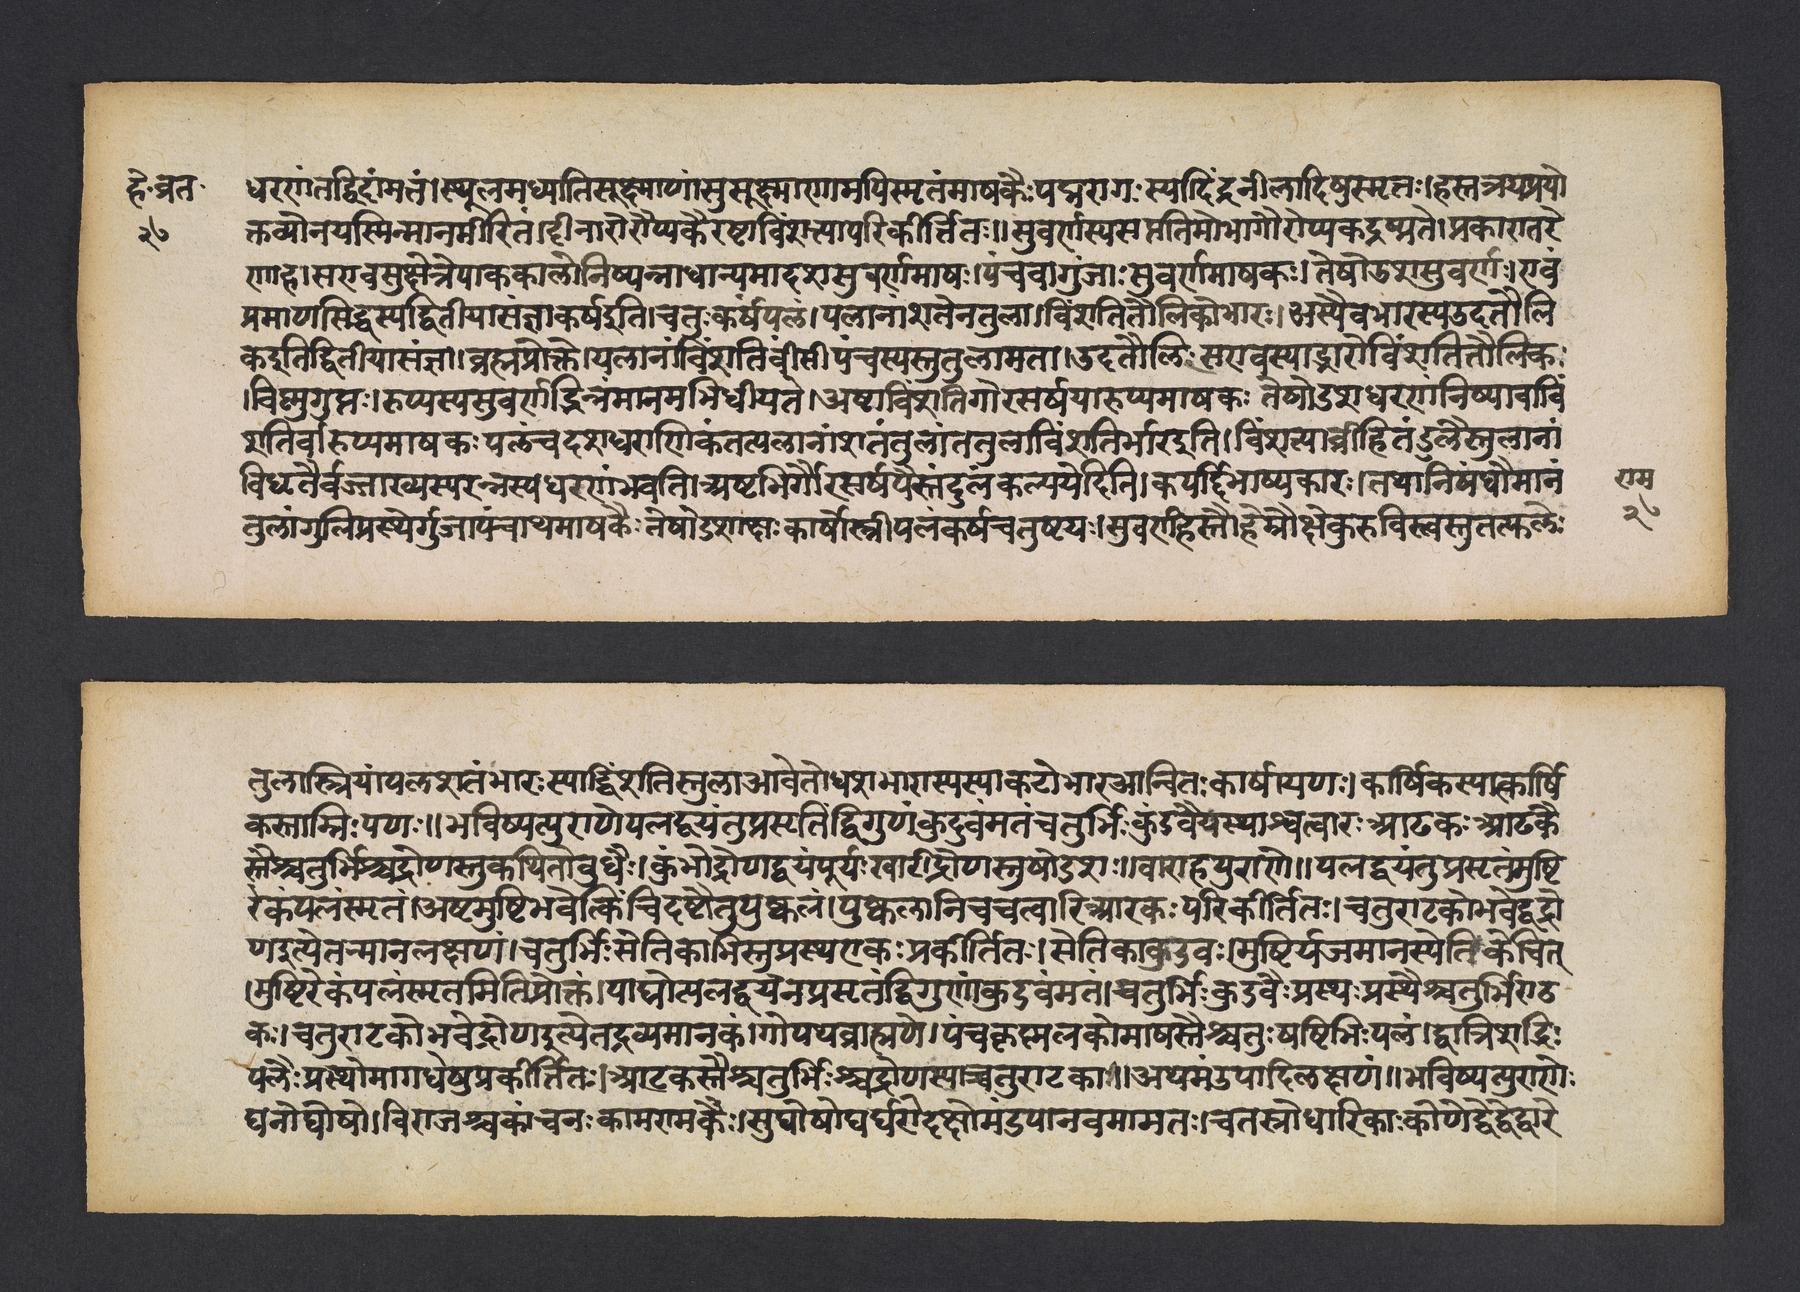 हे॰व्रत॰
२७
धरणंतद्विदांमतं।स्थूलमध्यातिसूक्ष्माणांसुसूक्ष्माणामपिस्मृतंमाषकैःपद्मरागःस्यादिंद्रनीलादिषुस्मृतः।हस्तत्रयप्रयो
क्तव्यौनयस्मिन्मानमीरितं।दीनारोरौप्यकैरष्टाविंशत्यापरिकीर्त्तितः॥सुवर्णस्यसप्ततिमोभागोरोप्यकइष्यते।प्रकारांतरे
णाह।सएवसुक्षेत्रेपाककालोनिष्पन्नाधान्यमादशसुवर्णमाषः।पंचवागुंजाःसुवर्णमाषकः।तेषोडशसुवर्णः।एवं
प्रमाणसिद्धस्यद्वितीयासंज्ञाकर्षइति।चतुःकर्षंपलं।पलानांशतेनतुला।विंशतितौलिकोभारः।अस्यैवभारस्यउदतौलि
कइतिद्वितीयासंज्ञा।ब्रह्मप्रोक्ते।पलानांविंशतिर्वीसीपंचस्यस्तुतुलामता।उदतौलिःसएवस्याद्भारोविंशतितौलिकः
।विष्णुगुप्तः।रुप्यस्यसुवर्णाद्भिन्नंमानमभिधीयते।अष्टाविंशतिगौरसर्षपारुप्यमाषकःतेषोडशधरणंनिष्पावाविं
शतिर्वारुप्यमाषकःपलंचदशधरणिकंतत्पलानांशतंतुलांततुलाविंशतिर्भारइति।विंशत्याव्रीहितंडुलैस्तुलानां
विधृतैर्वज्राख्यस्यरत्नस्यधरणंभवति।अष्टभिर्गौरसर्षपैस्तंदुलंकल्पयेदिति।कपर्दिभाष्यकारः।तथानिघंघौमानं
तुलांगुलिप्रस्थैर्गुंजापंचाथमाषकैःतेषोडशाक्षःकार्षोस्त्रीपलंकर्षचतुष्टयः।सुवर्णहिस्तौहेम्नौक्षेकुरुविस्वस्तुतत्पलेः
राम
२७
तुलास्त्रियांपलशतंभारःस्याद्विंशतिस्तुलाआवेतोधशभारास्यस्याकटोभारआचितःकार्षापणः।कार्षिकस्यात्कार्षि
कस्ताम्निःपणः॥भविष्यत्पुराणेपलद्वयंतुप्रसृतिंद्विगुणंकुदुवंमतंचतुर्भिःकुंडवैयस्थाश्चत्वारःआढकःआढकै
स्तैश्चतुर्भिश्चद्रोणस्तुकथितोबुधैः।कुंभोद्रोणद्वयंपूर्यःखारीद्रोणस्तुषोडशः॥वाराहपुराणे॥पलद्वयंतुप्रसृतंमुष्टि
रंकंपलंस्मृतं।अष्टमुष्टिभवेत्किंचिदष्टौतुपुष्कलं।पुष्कलानिचचत्वारिआरकःपरिकीर्तितः।चतुराटकोभवेद्द्रो
णइत्येतन्मानलक्षणं।चतुर्भिःसेतिकाभिस्तुप्रस्थएकःप्रकीर्तितः।सेतिकाकुडवः।मुष्टिर्यजमानस्येतिकेचित्
।मुष्टिरेकंपलंस्मृतमितिप्रोक्तं।पाघोत्सलद्वयंनप्रसृतंद्विगुणंकुडवंमतं।चतुर्भिःकुडवैःप्रस्थःप्रस्थैश्चतुर्भिराठ
कः।चतुराटकोभवेद्रोणइत्येतद्द्रव्यमानकं।गोपथब्राह्मणे।पंचकृष्मलकोमाषस्तैश्चतुःषष्टिभिःपलं।द्वात्रिशद्भिः
पलैःप्रस्थोमागधेषुप्रकीर्तितः।आटकस्तैश्चतुर्भिःश्चद्रोणस्याच्चतुराटका॥।अथमंडपादिलक्षणं॥भविष्यत्पुराणेः
घनोघोषो।विराजश्चकांचनःकामरामकैः।सुघोषोघर्घरोदक्षोमंडपानवमामतः।चतस्रोधारिकाःकोणेद्वेद्वेद्वारे